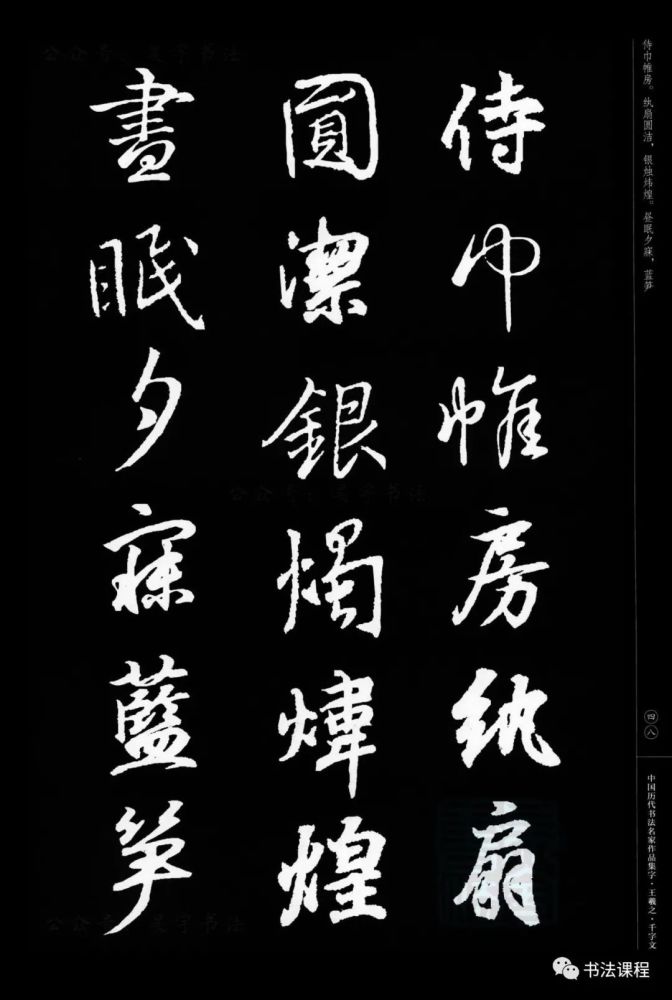 侍巾帷房纨扇
圓潔銀燭煒煌
晝眠夕寐藍笋
侍巾帷房。纨扇圆洁，银烛炜煌。昼眠夕寐，蓝笋
四八
中国历代书法名家作品集字·王羲之·千字文
公众号：昊宇书法
公众号：昊宇书法
公众号：昊宇书法
书法课程